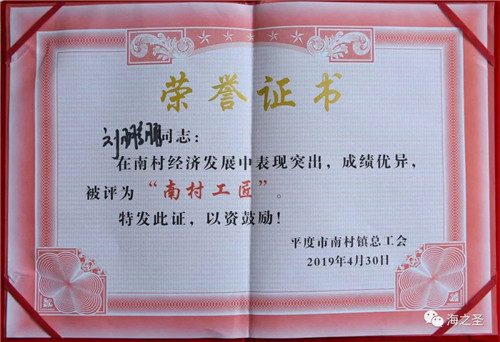 荣誉证书
刘鹏鹏同志：
在南村经济发展中表现突出，成绩优异，
被评为“南村工匠”。
特发此证，以资鼓励！
平度市南村镇总工会
2019年4月30日
海之圣